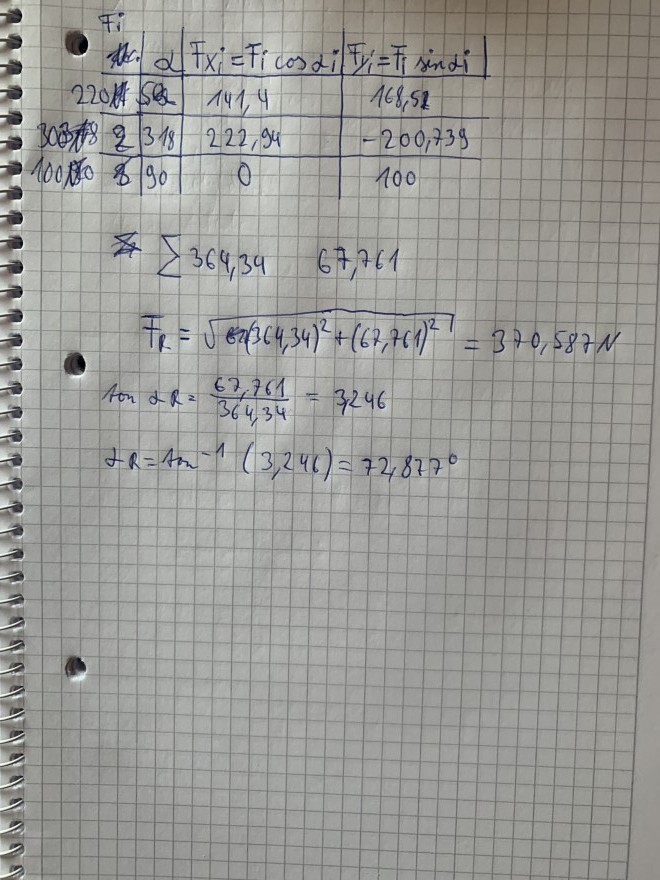 Fi
α Fxi=Fi cos αi Fyi=Fi sin αi
220 141,4 168,5
300 2 318 222,94 -200,739
100 3 90 0 100
Σ 364,34 67,761
FR = √(364,34)² + (67,761)² = 370,587N
tan αR = 67,761/364,34 = 3,246
αR = tan⁻¹ (3,246) = 72,877°